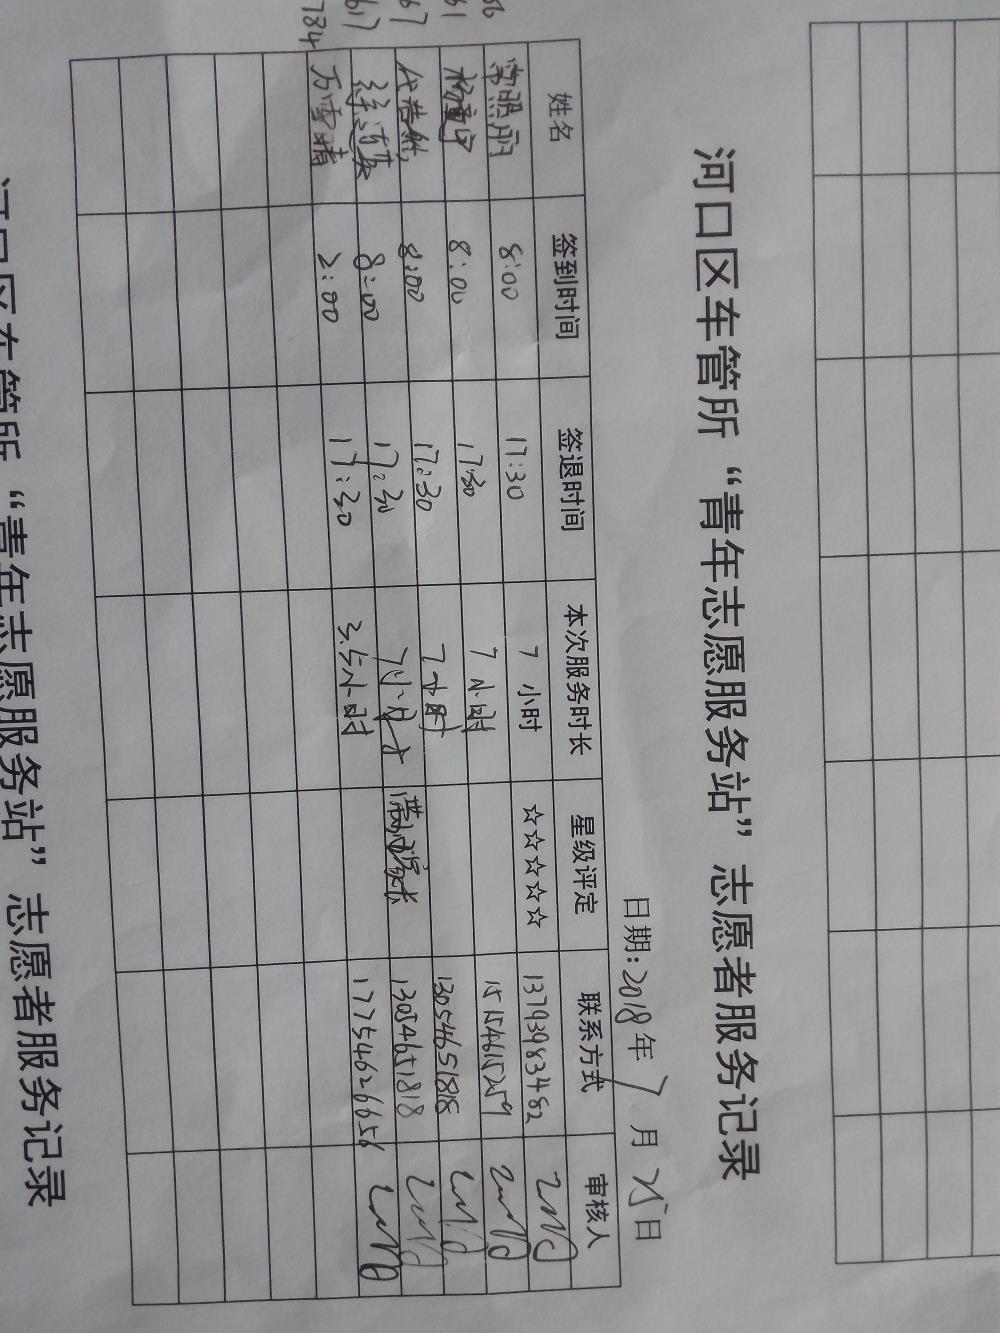 56
61
67
617
784
河口区车管所“青年志愿服务站”志愿者服务记录
日期:2018年7月25日
姓名 签到时间 签退时间 本次服务时长 星级评定 联系方式 审核人
8:00 17:30 7小时 ☆☆☆☆☆ 13793983482
8:00 17:30 7小时 15154615259
代浩然 8:00 17:30 7小时 13054651818
8:00 17:30 7小时 13054651818
万雪晴 2:00 17:30 3.5小时 17754626656
河口区车管所“青年志愿服务站”志愿者服务记录